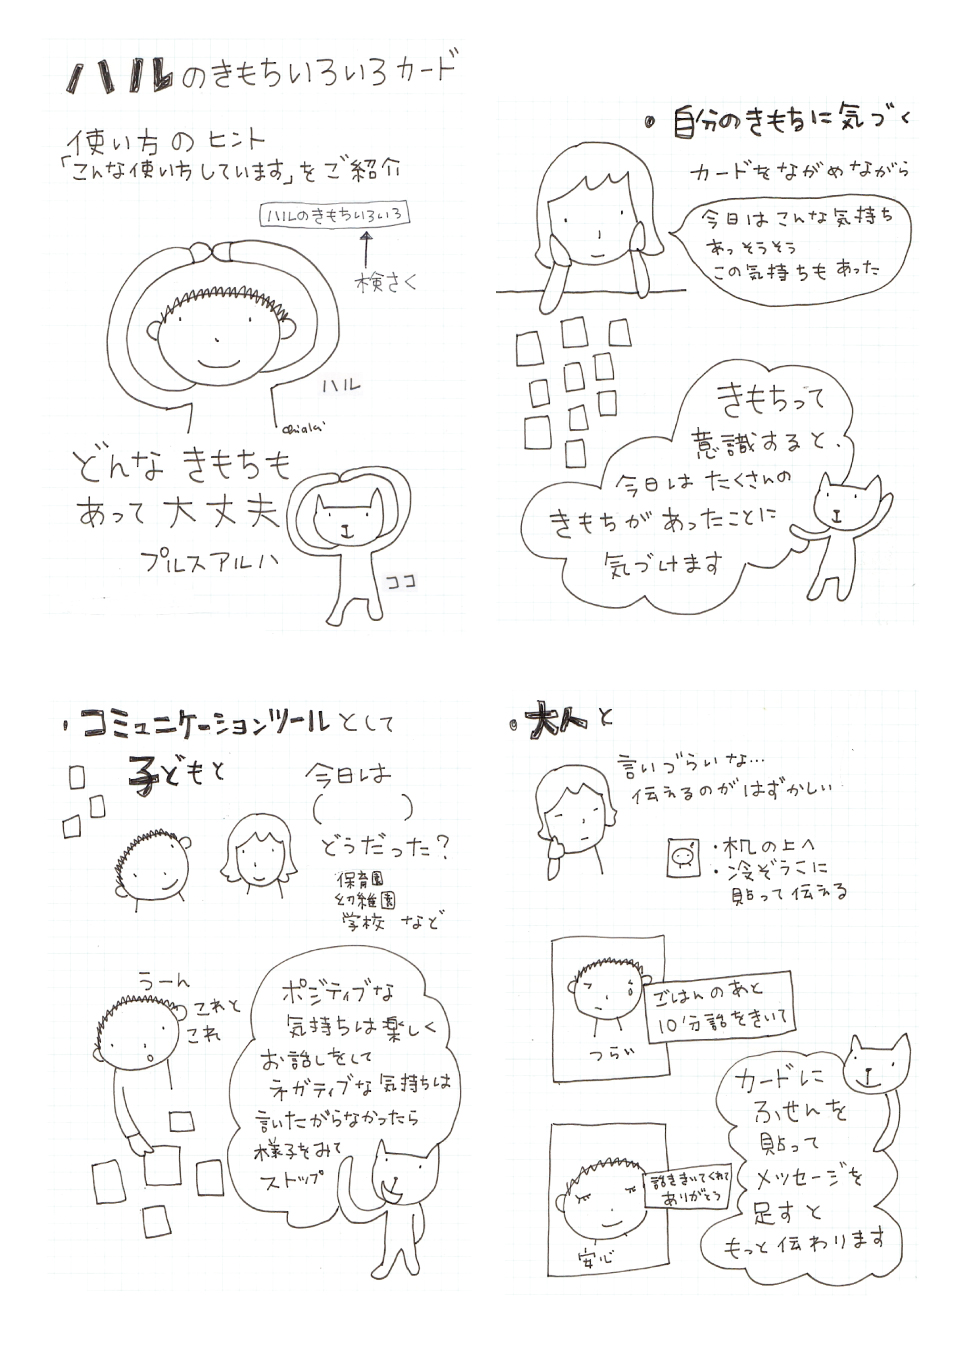 ハルのきもちいろいろカード
使い方のヒント
「こんな使い方しています」をご紹介
ハルのきもちいろいろ
検さく
ハル
chiaki
どんなきもちも
あって大丈夫
プルスアルハ
ココ
・自分のきもちに気づく
カードをながめながら
今日はこんな気持ち
あっそうそう
この気持ちもあった
きもちって
意識すると、
今日はたくさんの
きもちがあったことに
気づけます
・コミュニケーションツールとして
子どもと
今日は
(　　　)
どうだった?
保育園
幼稚園
学校 など
うーん
これと
これ
ポジティブな
気持ちは楽しく
お話しをして
ネガティブな気持ちは
言いたがらなかったら
様子をみて
ストップ
・大人と
言いづらいな…
伝えるのがはずかしい
・机の上へ
・冷ぞうこに
貼って伝える
ごはんのあと
10分話をきいて
つらい
話をきいてくれて
ありがとう
安心
カードに
ふせんを
貼って
メッセージを
足すと
もっと伝わります